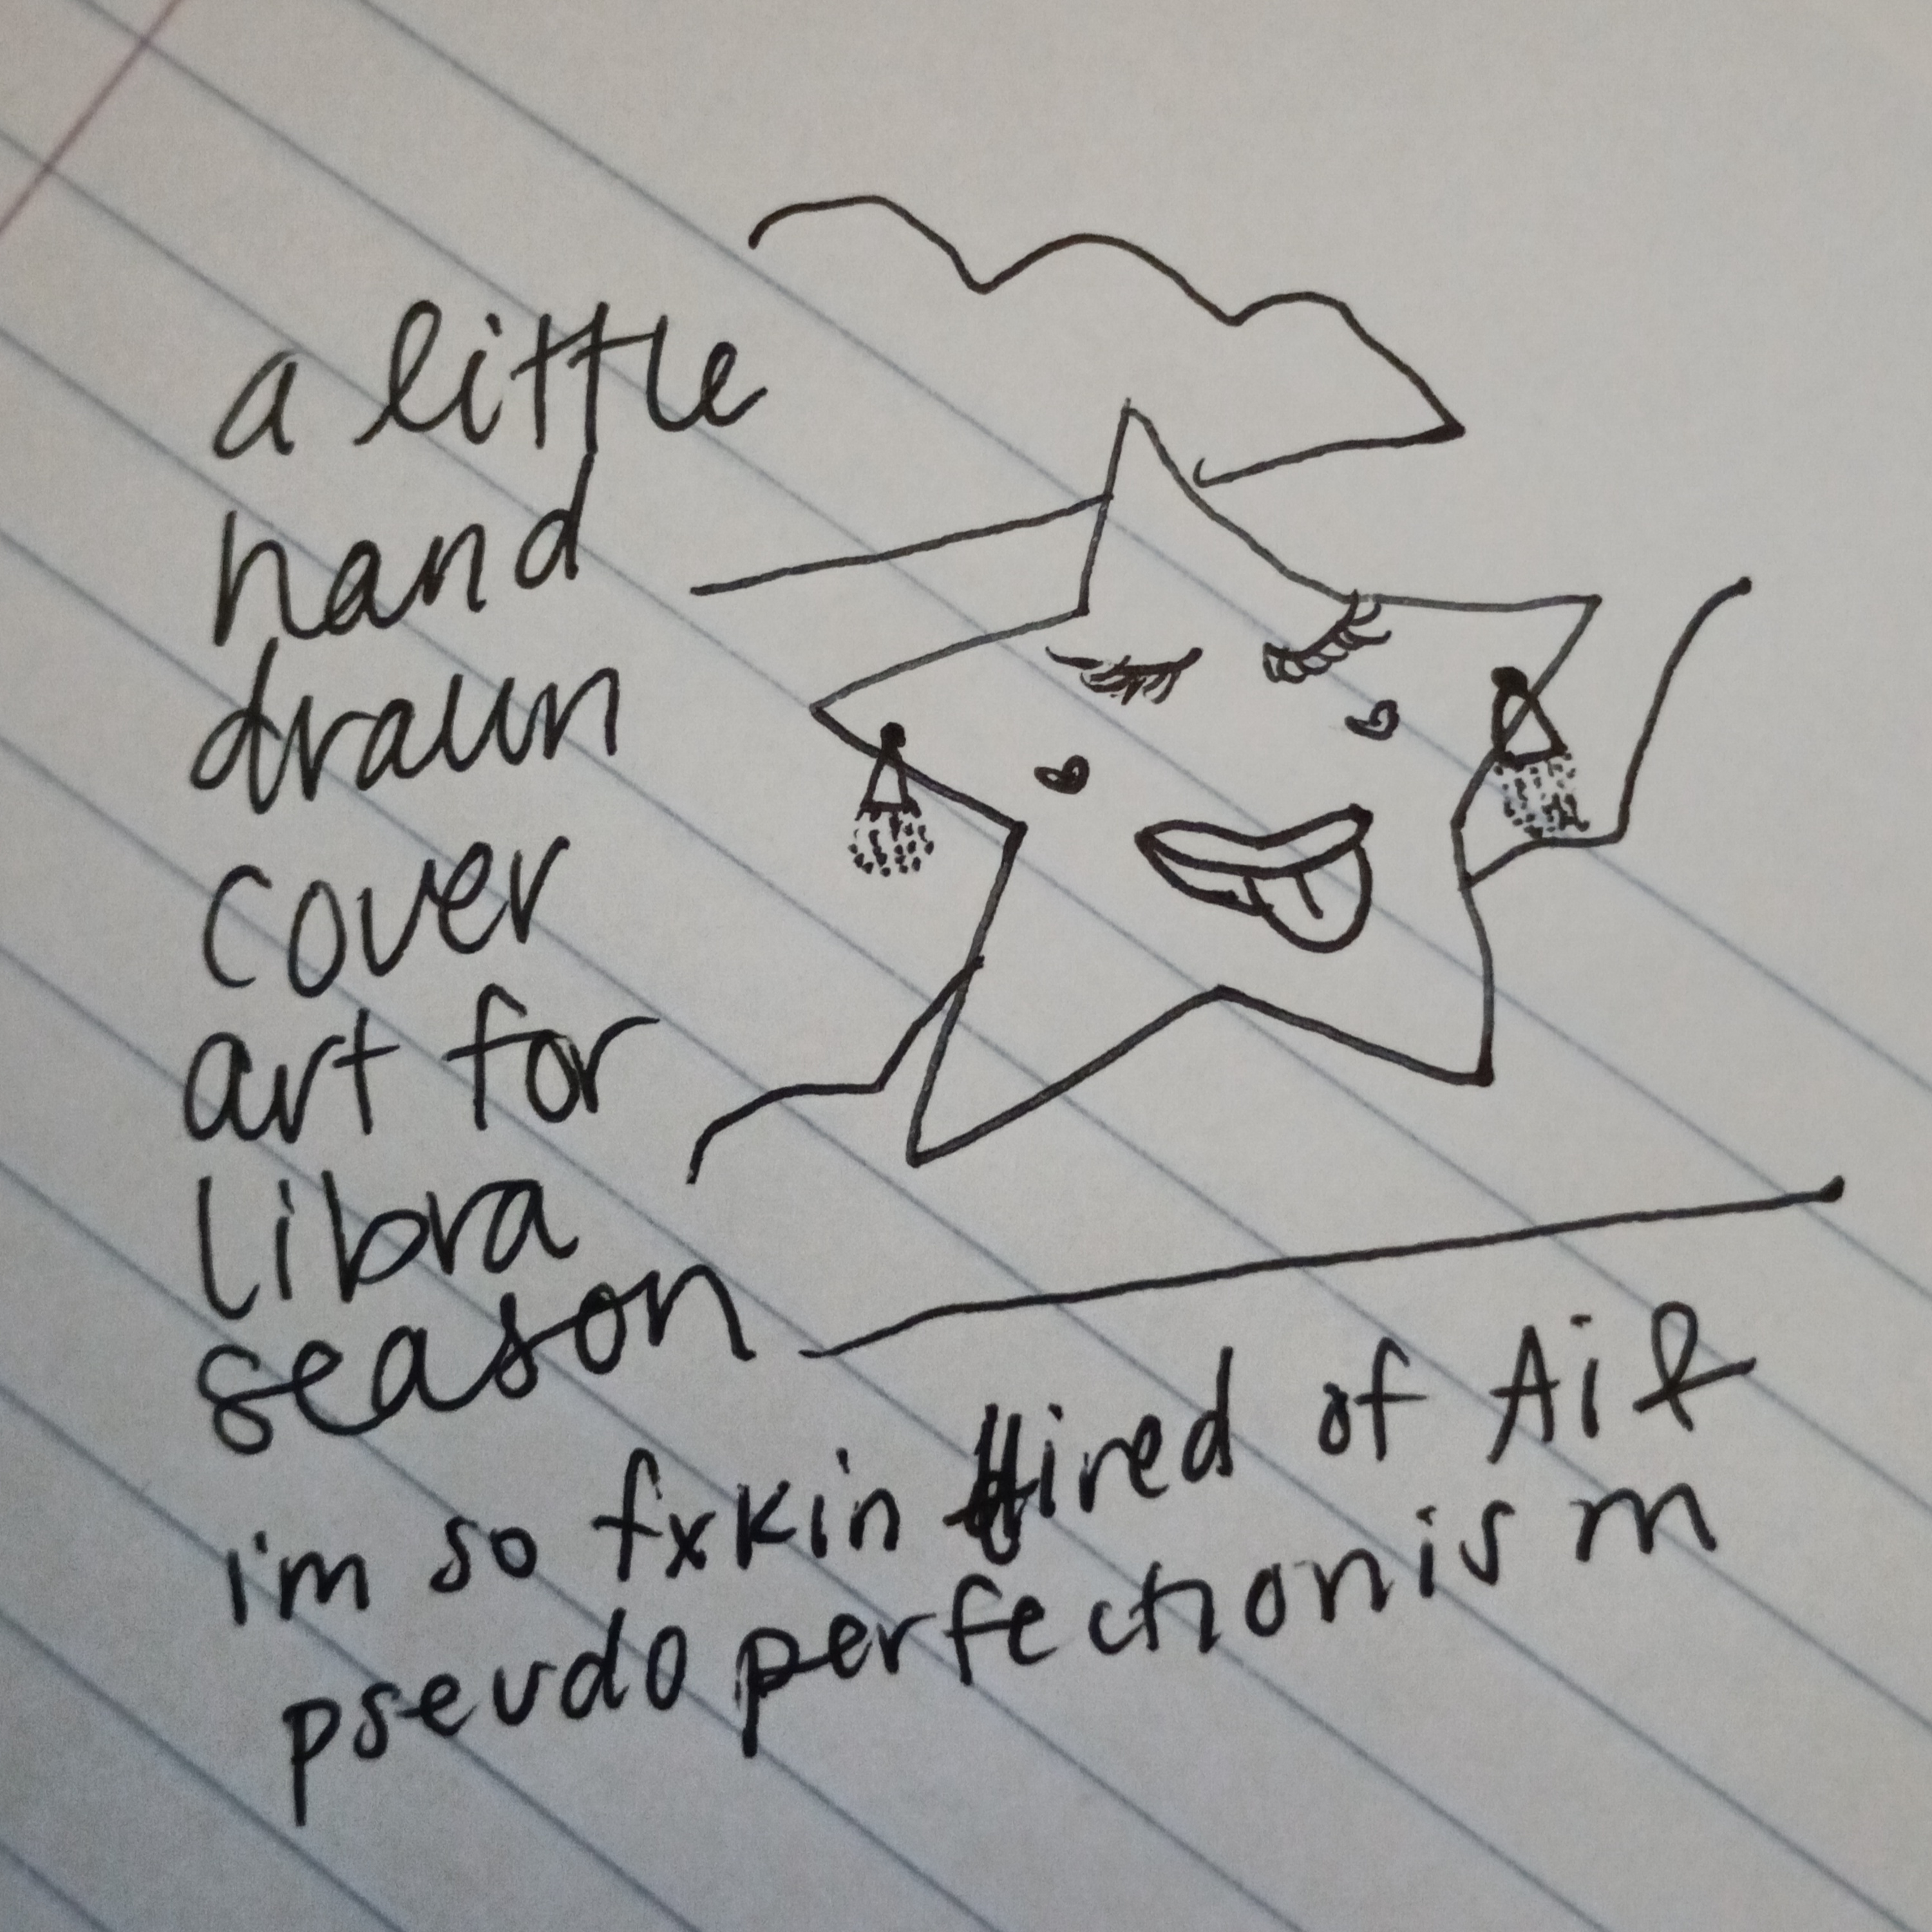 a little
hand
drawn
cover
art for
libra
season
i'm so fxkin tired of Ai &
pseudo perfectionism